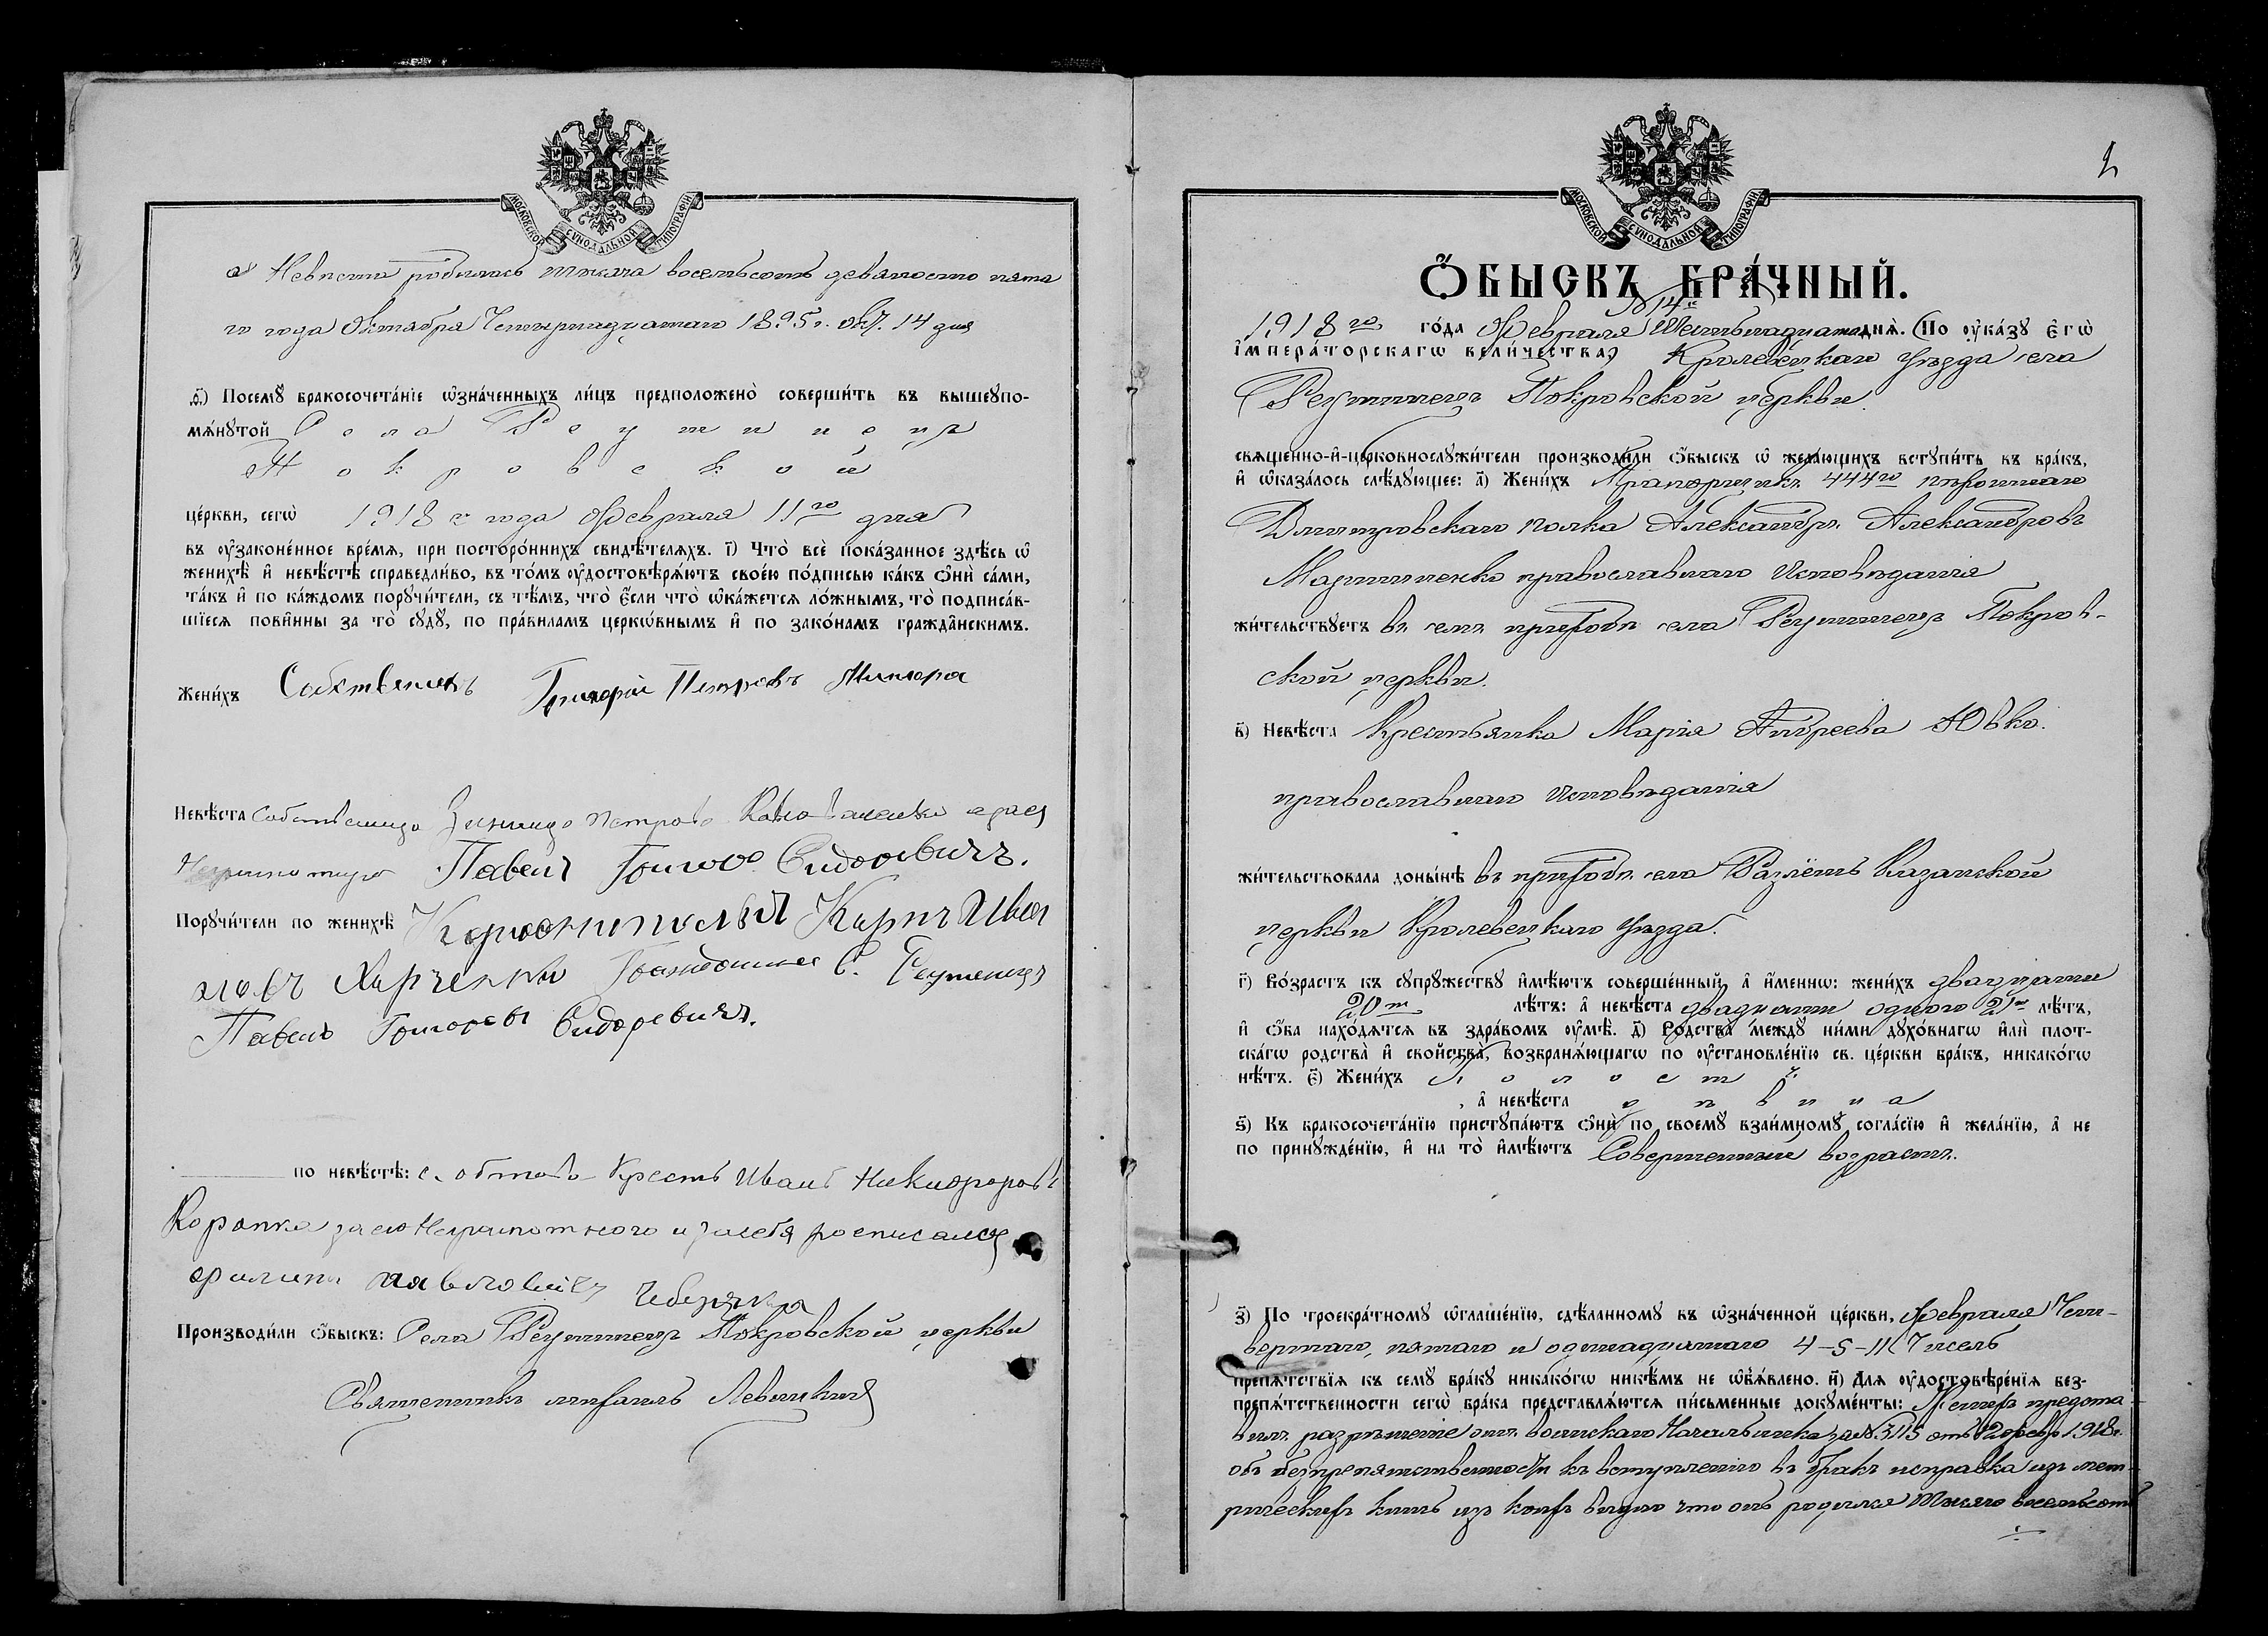 МОСКОВСКОЙ СѴНОДАЛЬНОЙ ТИПОГРАФІИ
а Невѣста родилась тысяча восемьсотъ девяносто пята
го года Октября Четырнадцатаго 1895 г. окт. 14 дня
д҃) Посемꙋ бракосочета́нїе ѡ҆зна́ченныхъ ли́цъ предположено̀ соверши́ть въ вышеꙋпо-
мѧ́нꙋтой Села Реутинецъ
Покровской
це́ркви, сегѡ̀ 1918 г года Февраля 11го дня
въ ᲂу҆законе́нное вре́мѧ, при посторо́ннихъ свидѣ́телѧхъ. і҃) Что̀ всѐ пока́занное здѣ́сь ѡ҆
женихѣ̀ и҆ невѣ́стѣ справедли́во, въ то́мъ ᲂу҆достовѣрѧ́ютъ свое́ю по́дписью ка́къ ѻ҆нѝ са́ми,
та́къ и҆ по ка́ждомъ порꙋчи́тели, съ тѣ́мъ, что̀ є҆́сли что̀ ѡ҆ка́жетсѧ ло́жнымъ, то̀ подписа́в-
шїесѧ пови́нны за то̀ сꙋдꙋ̀, по пра́виламъ церкѡ́внымъ и҆ по зако́намъ гражда̑нскимъ.
Жени́хъ Собственикъ Григорій Петровъ
Невѣ́ста Зинаида Петрова Коноваленко а за ея
Неграмотную Павелъ Григо Сидоревичъ.
Порꙋчи́тели по женихѣ̀ Карпъ Иван
Харченко Гражданинъ С. Реутинецъ
Павелъ Григорьевъ Сидоревичъ.
по невѣ́стѣ: с. Крест Иванъ Никифоровъ
Коропка за его Неграмотного и за себя росписался
филипъ Павловичъ
Производи́ли ѻ҆́быскъ: Села Реутинецъ Покровской церкви
Священникъ Михаилъ Левицкій
2
МОСКОВСКОЙ СѴНОДАЛЬНОЙ ТИПОГРАФІИ
Ѻ҆́БЫСКЪ БРА́ЧНЫЙ.
№ 14й
1918го го́да Февраля Шестьнадцатаго днѧ̀. (По ᲂу҆ка́зꙋ є҆гѡ̀
і҆мпера́торскагѡ вели́чества) Кролевецкаго уѣзда села
Реутинецъ Покровской церкви.
свѧще́нно-и҆-церковнослꙋжи́тели производи́ли ѻ҆́быскъ ѡ҆ жела́ющихъ встꙋпи́ть въ бра́къ,
и҆ ѡ҆каза́лось слѣ́дꙋющее: а҃) Жени́хъ Прапорщикъ 444го пѣхотнаго
Дмитровскаго полка Александръ Александровъ
Мартыненко православнаго исповѣданія
жи́тельствꙋетъ въ семъ приходѣ села Реутинецъ Покров-
ской церкви.
в҃) Невѣ́ста Крестьянка Марія Андреева Ювко.
православнаго исповѣданія
жи́тельствовала доны́нѣ въ приходѣ села Разлётъ Казанской
церкви Кролевецкаго уѣзда.
г҃) Во́зрастъ къ сꙋпрꙋ́жествꙋ и҆мѣ́ютъ соверше́нный, а҆ и҆́меннѡ: жени́хъ двадцати
20ти лѣ́тъ: а҆ невѣ́ста двадцати одного 21го лѣ́тъ,
и҆ ѻ҆́ба нахо́дѧтсѧ въ здра́вомъ ᲂу҆мѣ̀. д҃) Родства̀ междꙋ̀ ни́ми дꙋхо́внагѡ и҆лѝ плот-
ска́гѡ родства̀ и҆ свойства̀, возбранѧ́ющагѡ по ᲂу҆становле́нїю св. це́ркви бра́къ, никако́гѡ
нѣ́тъ. є҃) Жени́хъ холостъ
, а҆ невѣ́ста дѣвица
ѕ҃) Къ бракосочета́нїю пристꙋпа́ютъ ѻ҆нѝ по своемꙋ̀ взаи́мномꙋ согла́сїю и҆ жела́нїю, а҆ не
по принꙋжде́нїю, и҆ на то̀ и҆мѣ́ютъ Совершенный возрастъ.
з҃) По троекра́тномꙋ ѡ҆глаше́нїю, сдѣ́ланномꙋ въ ѡ҆зна́ченной це́ркви, Февраля Чет-
вертаго, пятаго и одинадцатаго 4–5–11 Чиселъ
препѧ́тствїѧ къ семꙋ̀ бра́кꙋ никако́гѡ никѣ́мъ не ѡ҆б̾ѧ́влено. и҃) Длѧ ᲂу҆достовѣре́нїѧ без-
препѧ́тственности сегѡ̀ бра́ка представлѧ́ютсѧ пи́сьменные докꙋме́нты: Женихъ предста
вилъ разрѣшеніе отъ воинскаго Начальника за № 3115 отъ 12 февр 1918 г.
объ безпрепятственности къ вступленію въ бракъ и справка изъ мет-
рическихъ книгъ изъ коихъ видно что онъ родился тысяча восемьсотъ